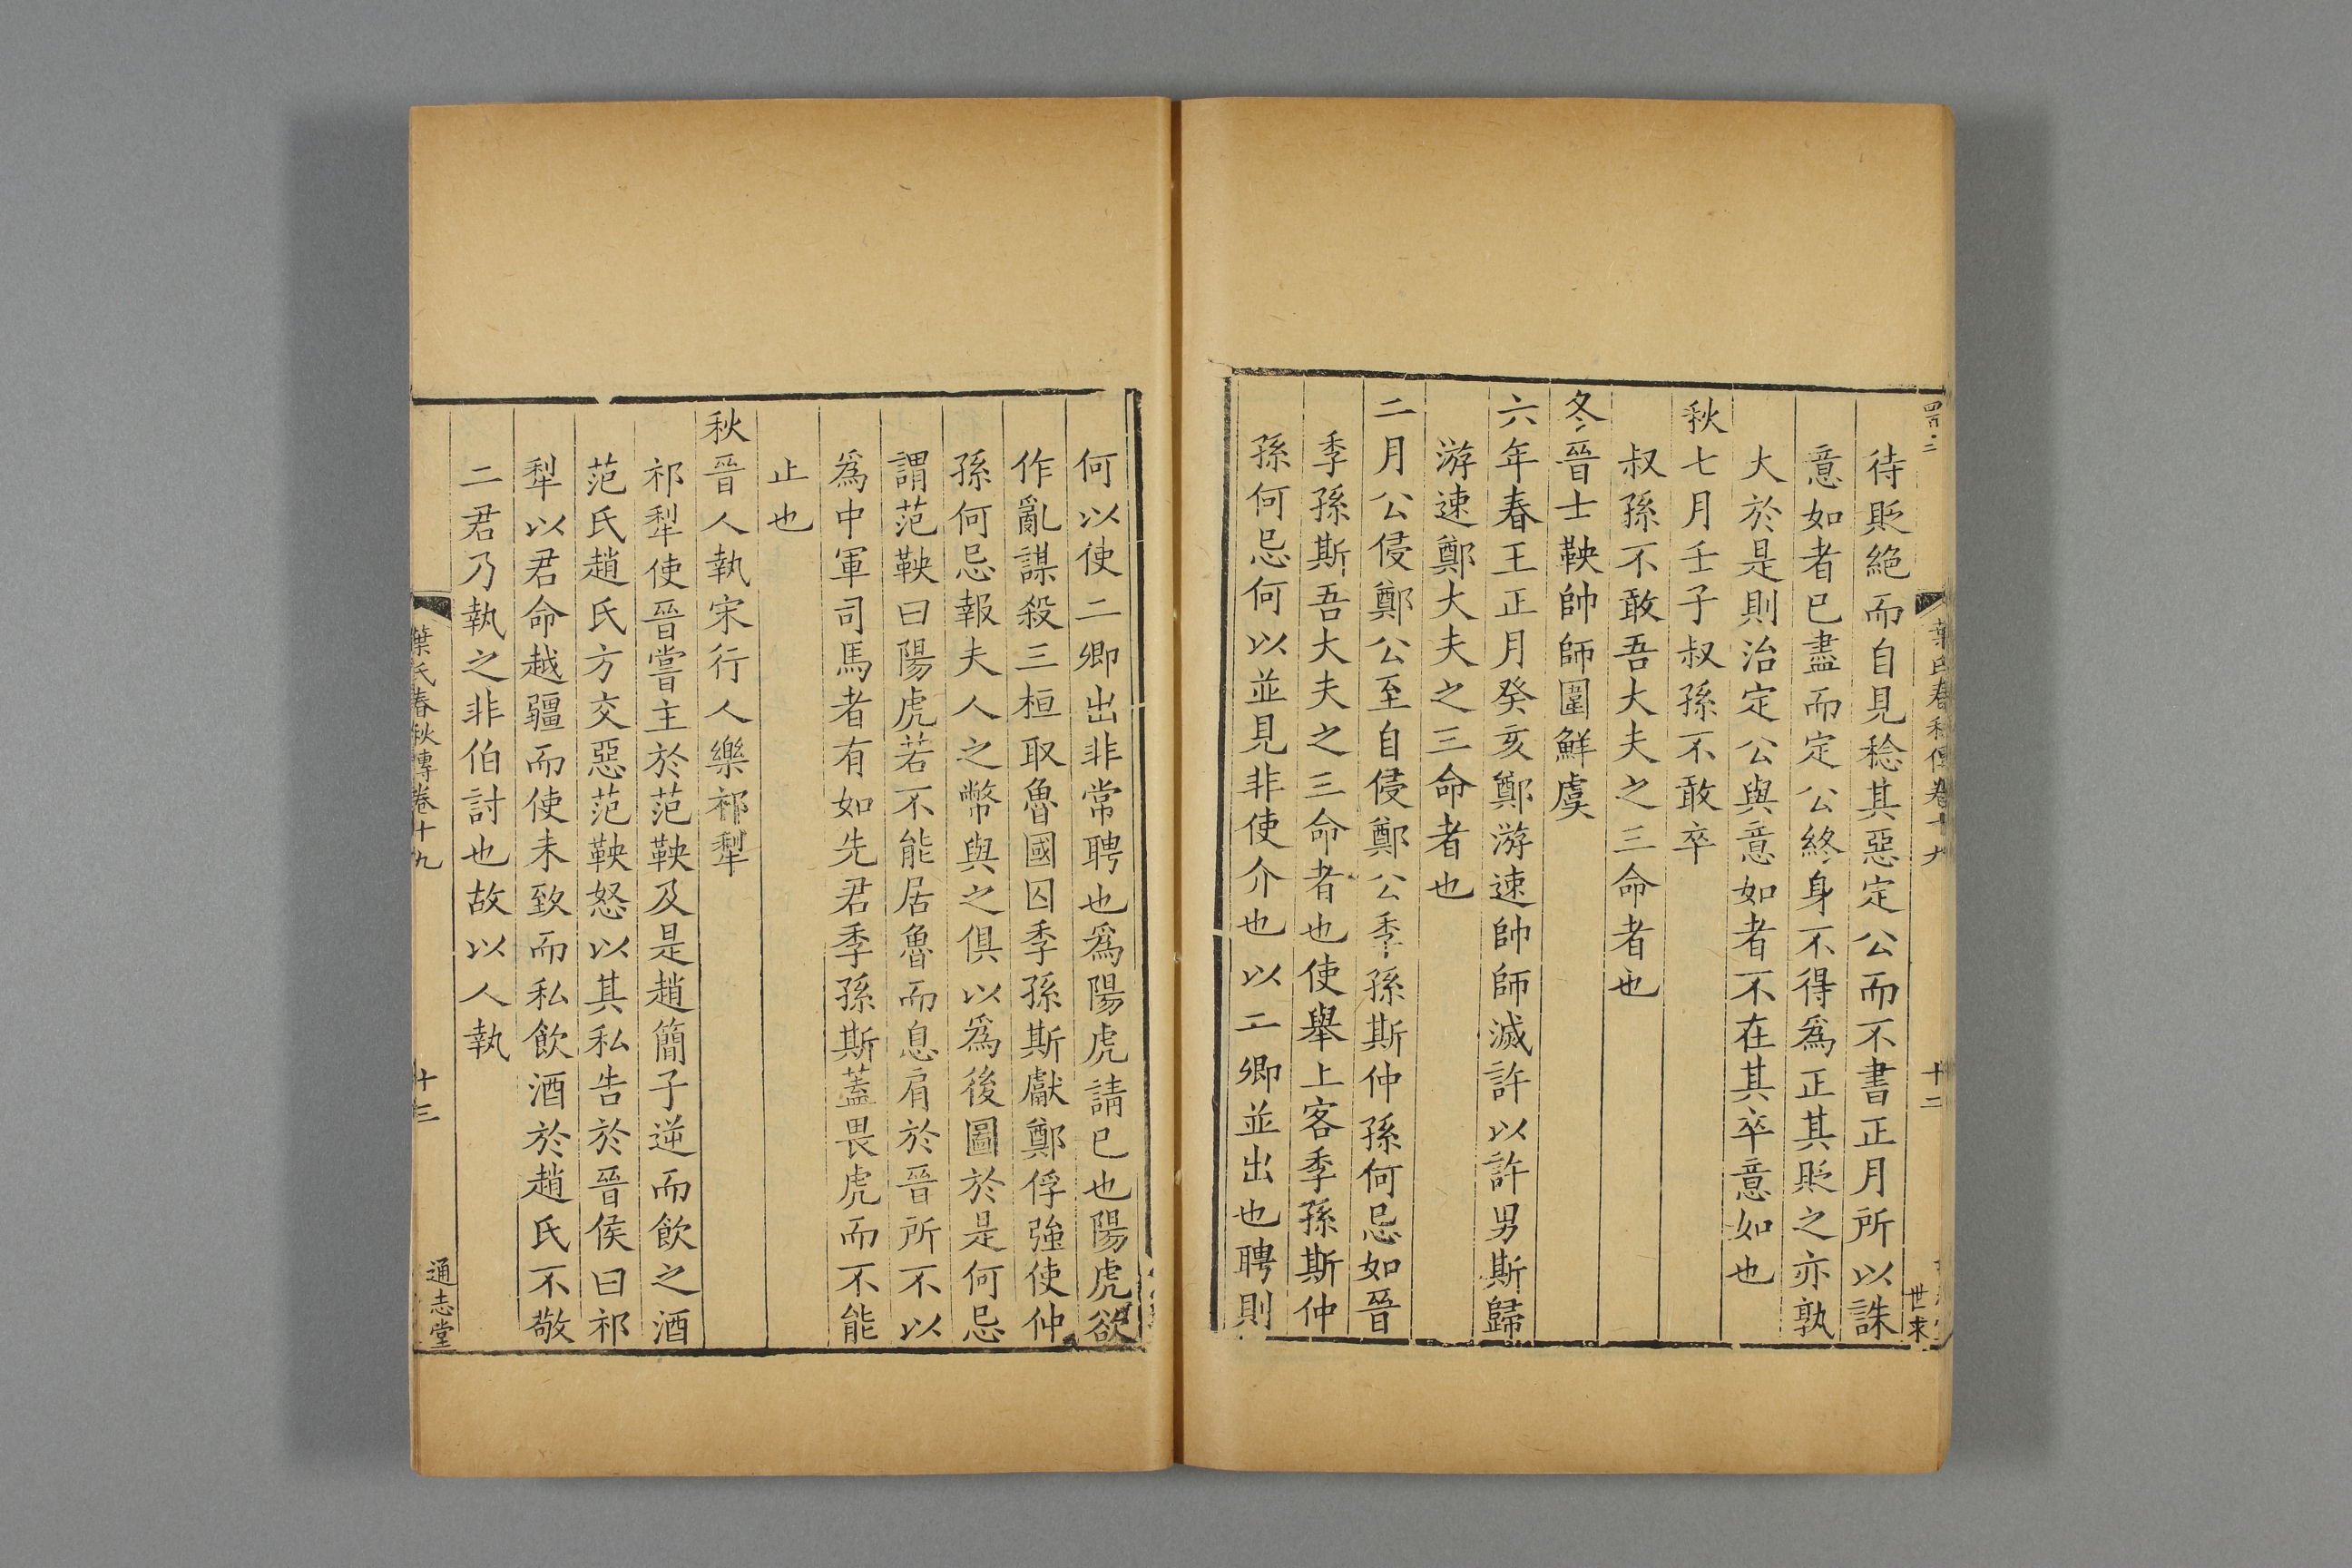 待貶絕而自見稔其惡定公而不書正月所以誅
意如者已盡而定公終身不得爲正其貶之亦孰
大於是則治定公與意如者不在其卒意如也
秋七月壬子叔孫不敢卒
叔孫不敢吾大夫之三命者也
冬晉士鞅帥師圍鮮虞
六年春王正月癸亥鄭游速帥師滅許以許男斯歸
游速鄭大夫之三命者也
二月公侵鄭公至自侵鄭公季孫斯仲孫何忌如晉
季孫斯吾大夫之三命者也使舉上客季孫斯仲
孫何忌何以並見非使介也以二卿並出也聘則
葉氏春秋傳卷十九
十二
世來
何以使二卿出非常聘也爲陽虎請已也陽虎欲
作亂謀殺三桓取魯國囚季孫斯獻鄭俘強使仲
孫何忌報夫人之幣與之俱以爲後圖於是何忌
謂范鞅曰陽虎若不能居魯而息肩於晉所不以
爲中軍司馬者有如先君季孫斯蓋畏虎而不能
止也
秋晉人執宋行人樂祁犁
祁犁使晉嘗主於范鞅及是趙簡子逆而飲之酒
范氏趙氏方交惡范鞅怒以其私告於晉侯曰祁
犁以君命越疆而使未致而私飲酒於趙氏不敬
二君乃執之非伯討也故以人執
葉氏春秋傳卷十九
十三
通志堂